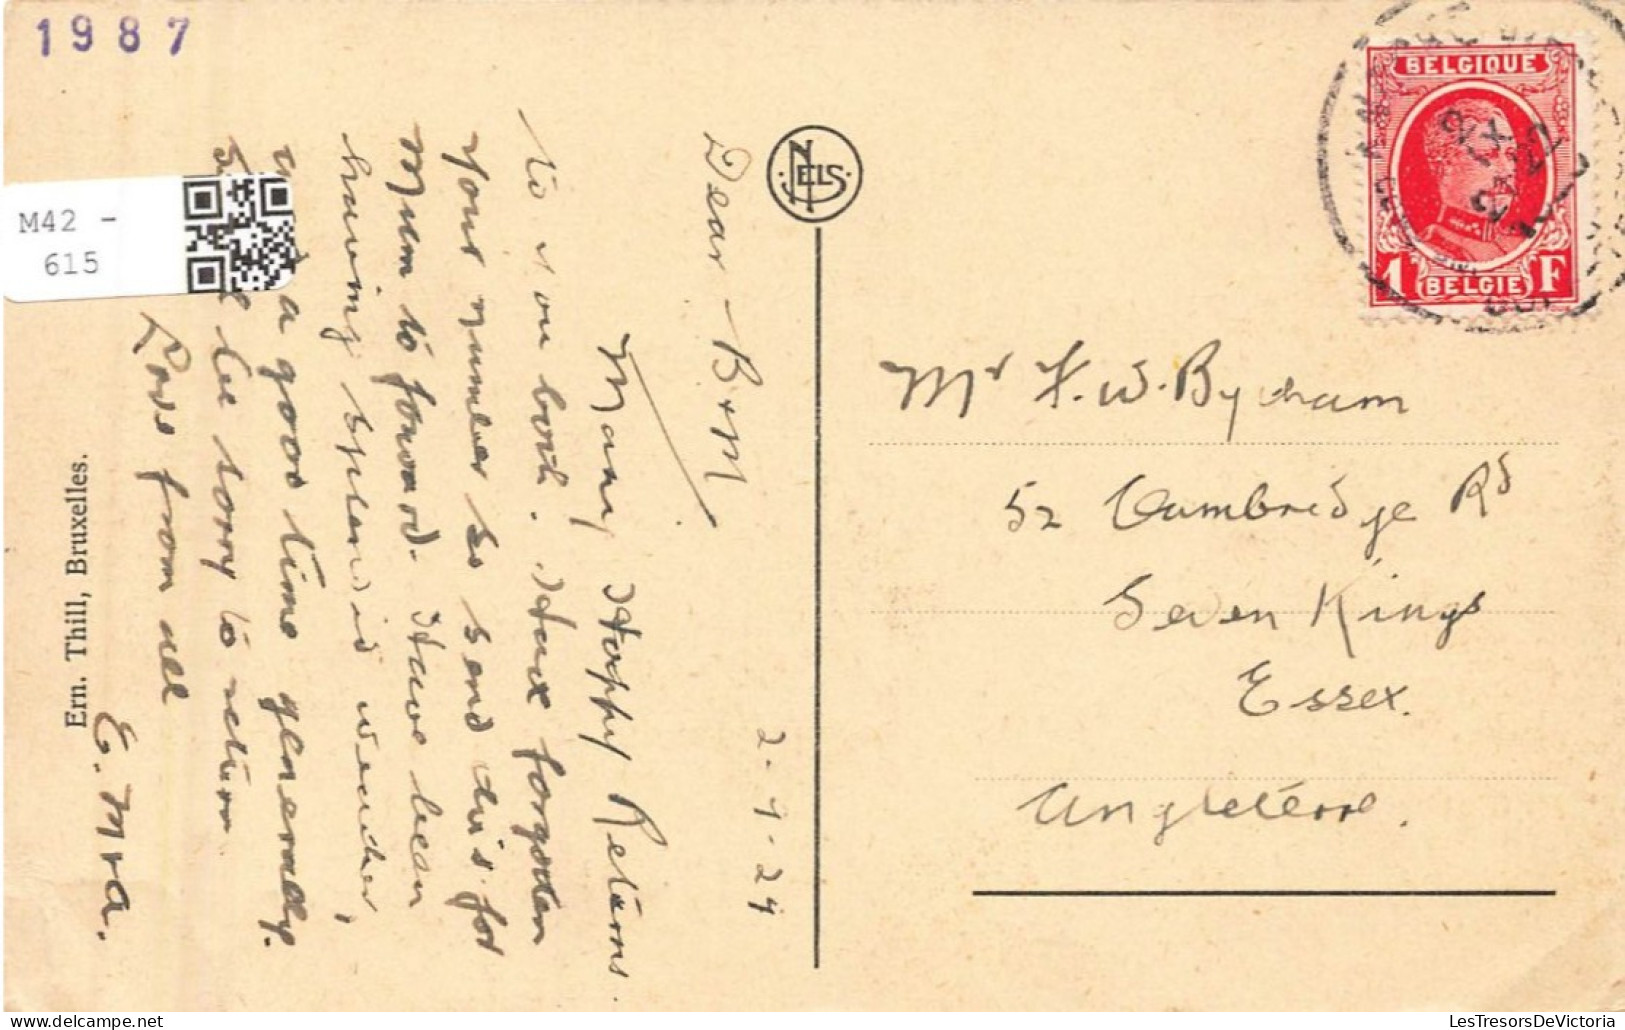 1987
M42 -
615
NELS
BELGIQUE
1 F
BELGIE
2-9-24
Dear B & M
Many Happy Returns
to you both. Have forgotten
your number so send this for
Mum to forward. Have been
having splendid weather,
and a good time generally.
Shall be sorry to return
Love from all
E. Mra.
Ern. Thill, Bruxelles.
Mr F. W. Bytham
52 Cambridge Rd
Seven Kings
Essex.
Angleterre.
LesTresorsDeVictoria